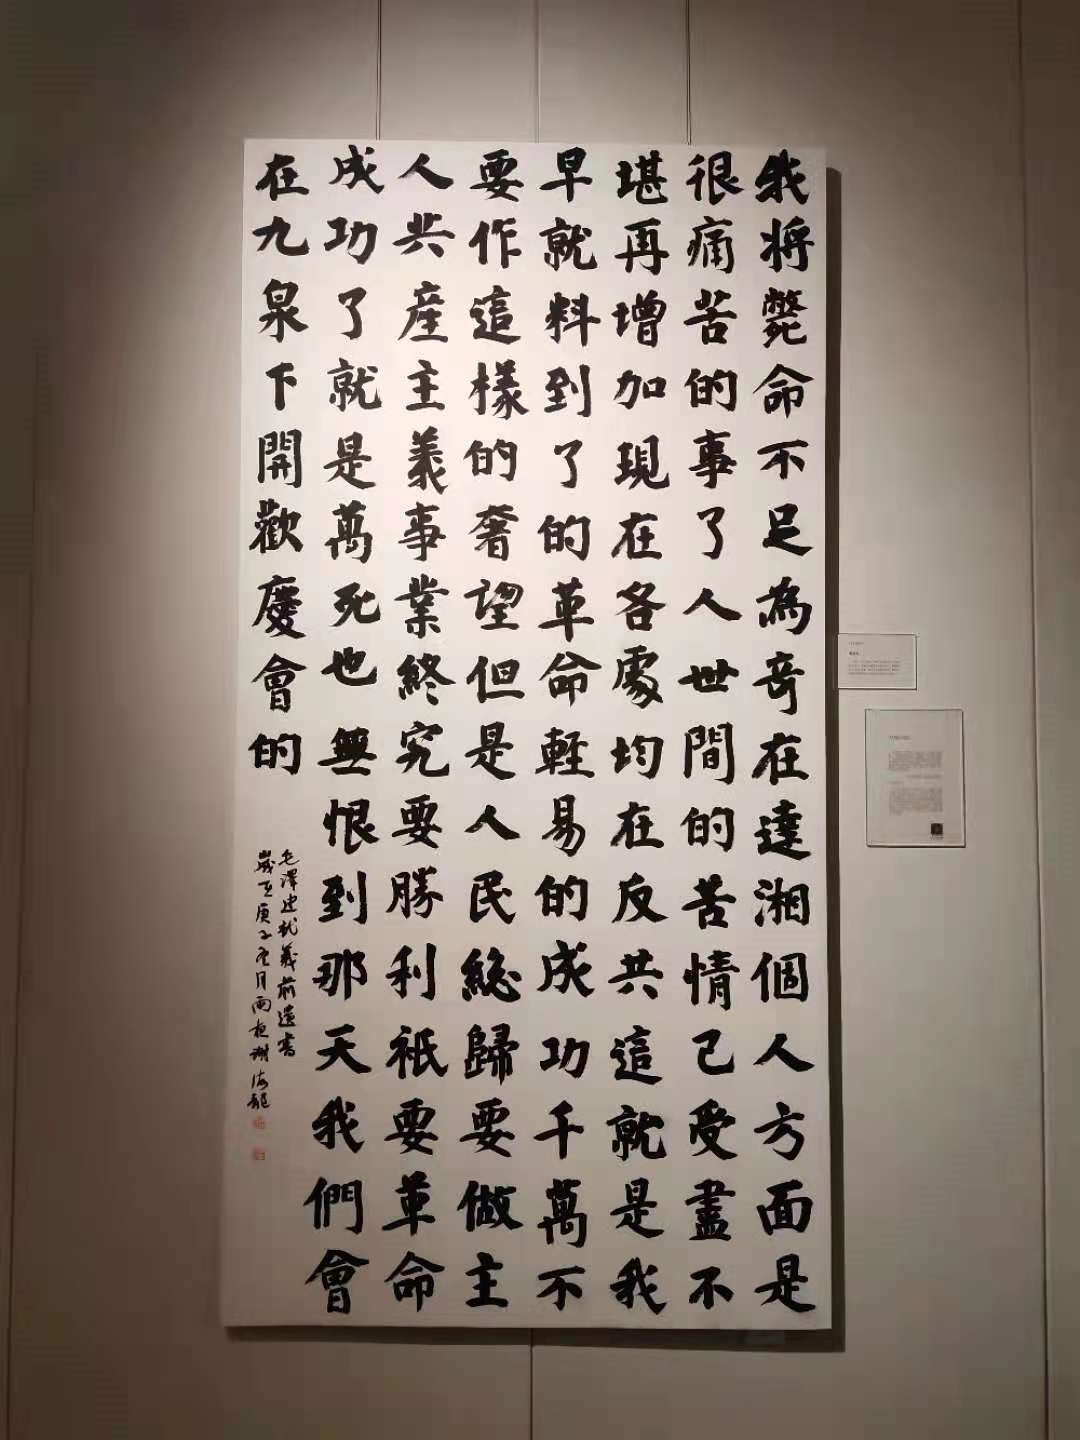 我将斃命不足為奇在達湘個人方面是
很痛苦的事了人世間的苦情已受盡不
堪再增加現在各處均在反共這就是我
早就料到了的革命輕易的成功千萬不
要作這樣的奢望但是人民總歸要做主
人共產主義事業終究要勝利祇要革命
成功了就是萬死也無恨到那天我們會
在九泉下開歡慶會的
毛澤建就義前遺書
歲在庚子 月雨夜謝海龍